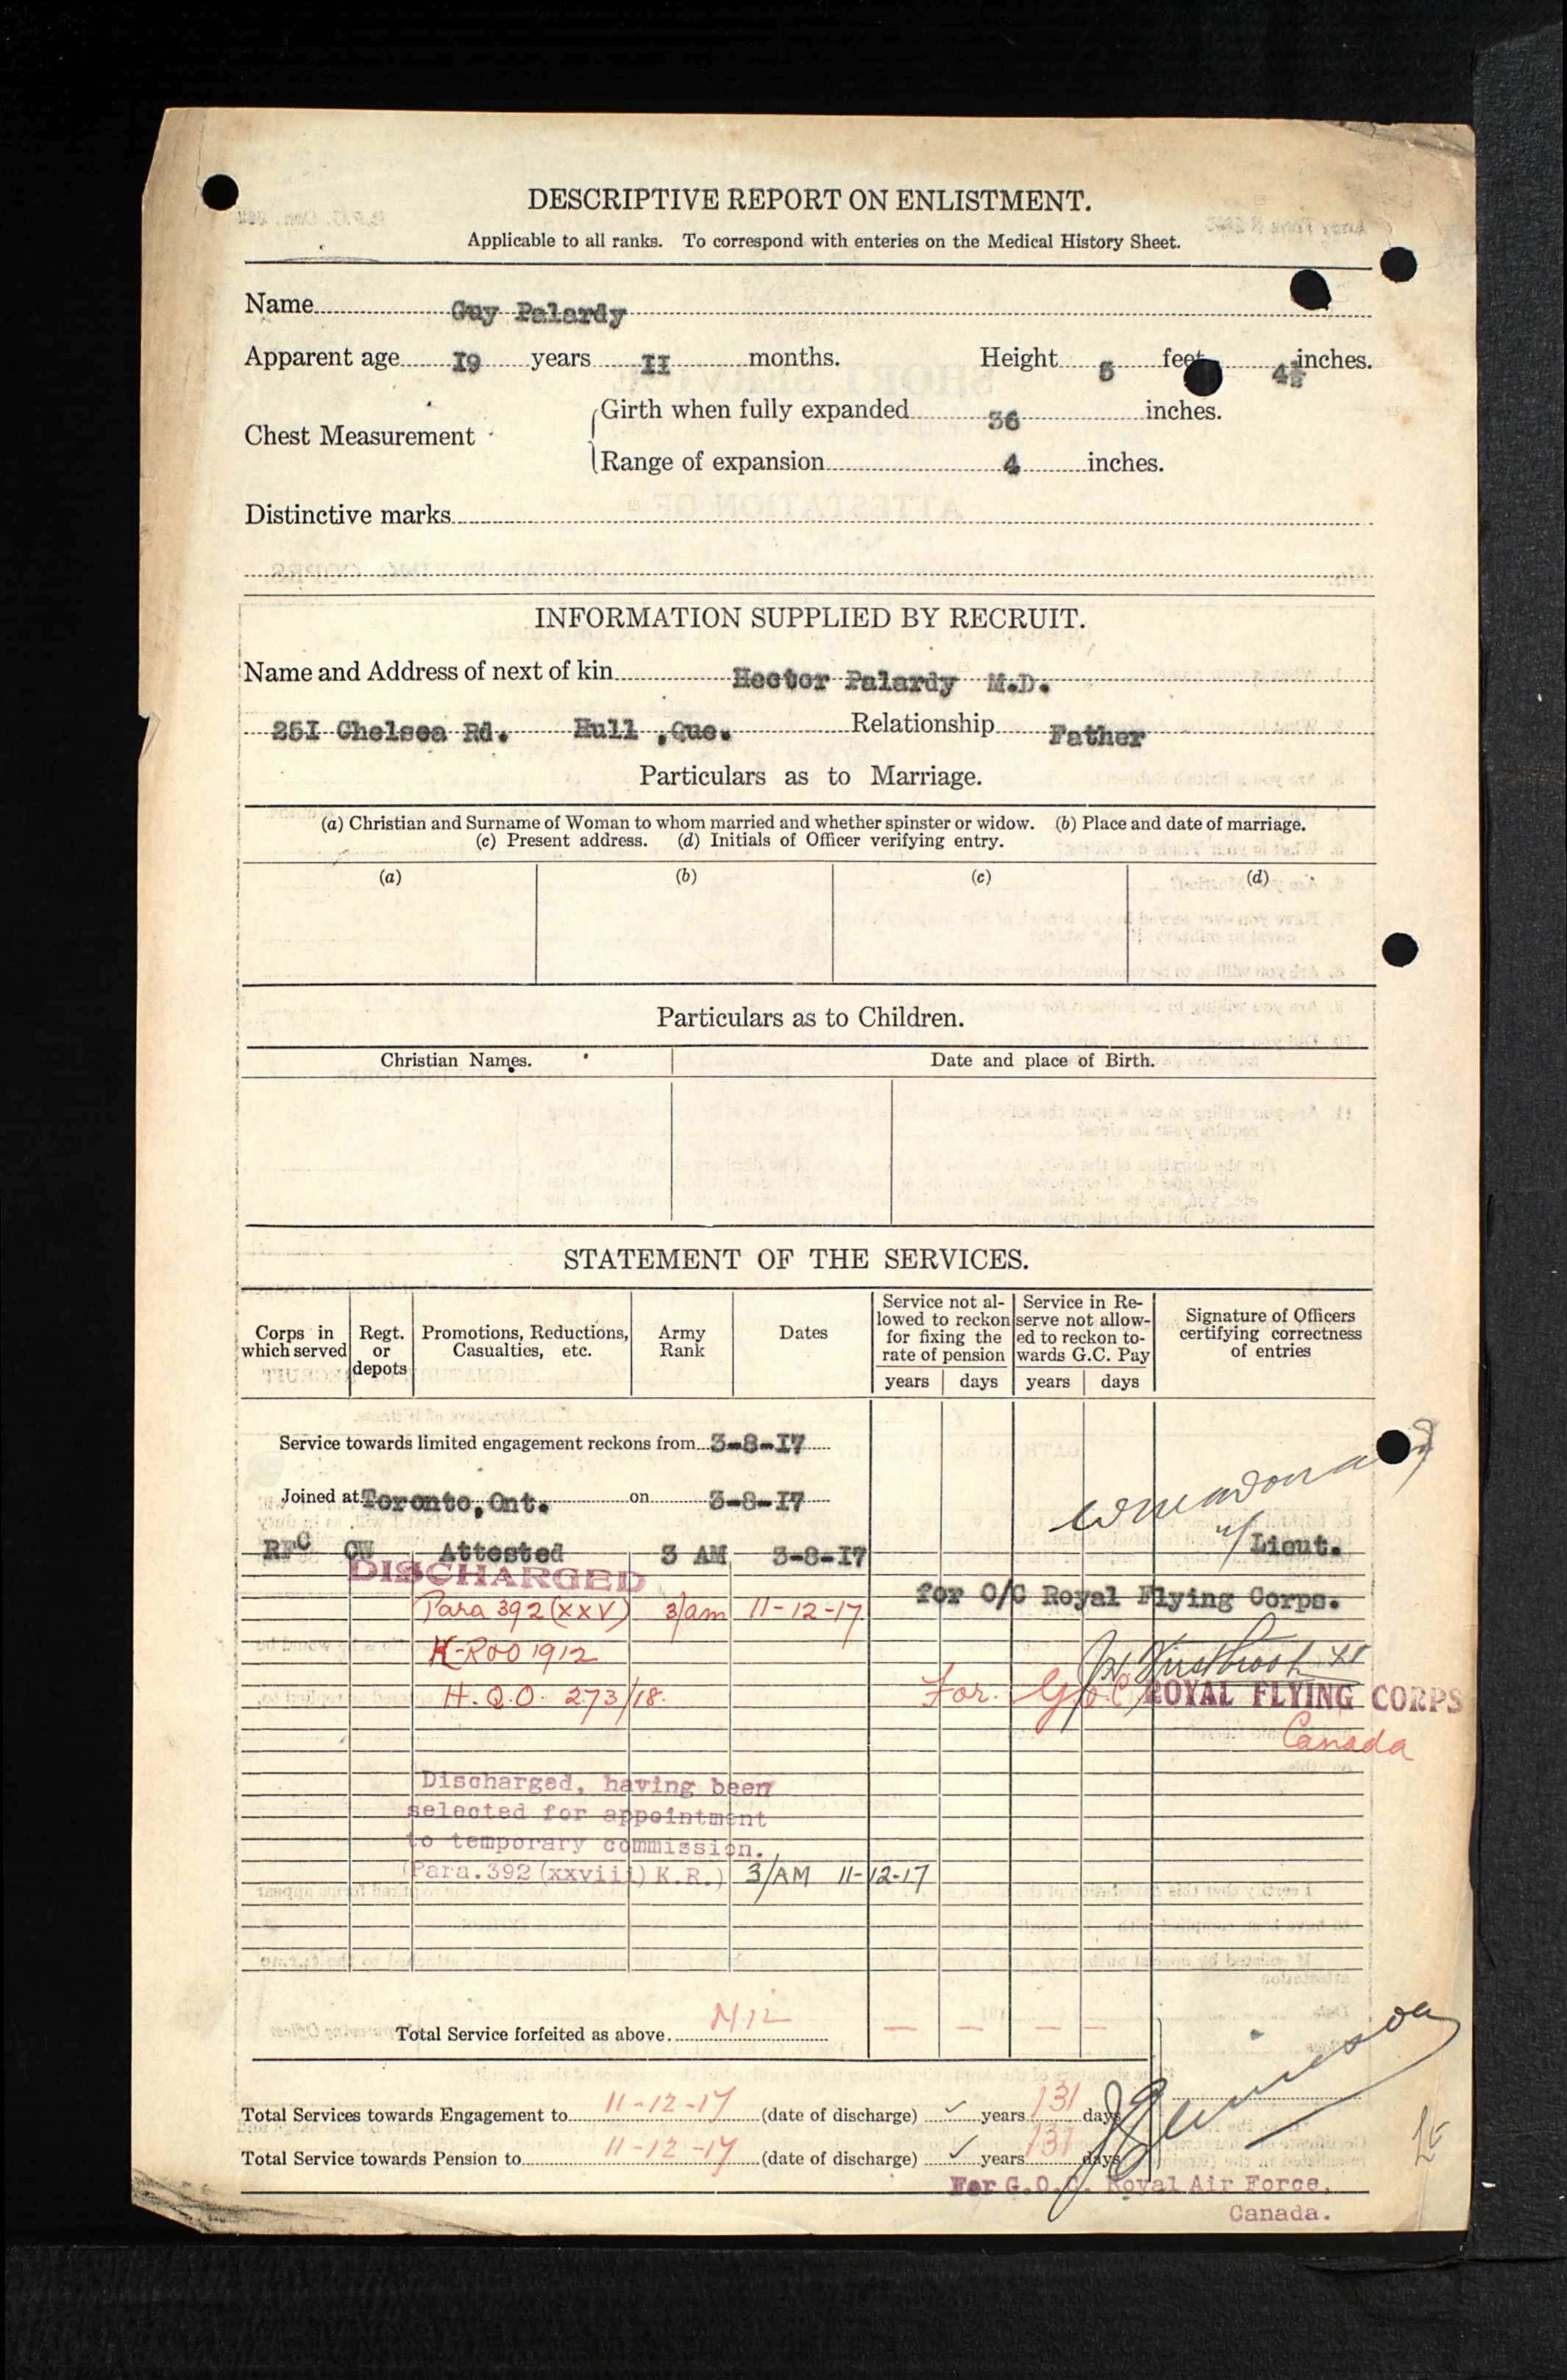 DESCRIPTIVE REPORT ON ENLISTMENT.
Applicable to all ranks. To correspond with enteries on the Medical History Sheet.
Name Guy Palardy
Apparent age 19 years 11 months. Height 5 feet 4½ inches.
Girth when fully expanded 36 inches.
Chest Measurement
Range of expansion 4 inches.
Distinctive marks
INFORMATION SUPPLIED BY RECRUIT.
Name and Address of next of kin Hector Palardy M.D.
251 Chelsea Rd. Hull ,Que. Relationship Father
Particulars as to Marriage.
(a) Christian and Surname of Woman to whom married and whether spinster or widow. (b) Place and date of marriage.
(c) Present address. (d) Initials of Officer verifying entry.
(a) (b) (c) (d)
Particulars as to Children.
Christian Names. Date and place of Birth.
STATEMENT OF THE SERVICES.
Corps in which served
Regt. or depots
Promotions, Reductions, Casualties, etc.
Army Rank
Dates
Service not allowed to reckon for fixing the rate of pension
Service in Reserve not allowed to reckon towards G.C. Pay
Signature of Officers certifying correctness of entries
years days years days
Service towards limited engagement reckons from 3-8-17
Joined at Toronto,Ont. on 3-8-17
RFC CW Attested 3 AM 3-8-17 Lieut.
DISCHARGED
for O/C Royal Flying Corps.
Para 392 (XXV) 3/am 11-12-17
K-Roo 1912
H.Q.O. 273/18. For. G.O.C. ROYAL FLYING CORPS
Canada
Discharged, having been
selected for appointment
to temporary commission.
(Para.392 (xxviii) K.R.) 3/AM 11-12-17
Total Service forfeited as above. Nil — — — —
Total Services towards Engagement to 11-12-17 (date of discharge) ✓ years 131 days
Total Service towards Pension to 11-12-17 (date of discharge) ✓ years 131 days
For G.O.C. Royal Air Force,
Canada.